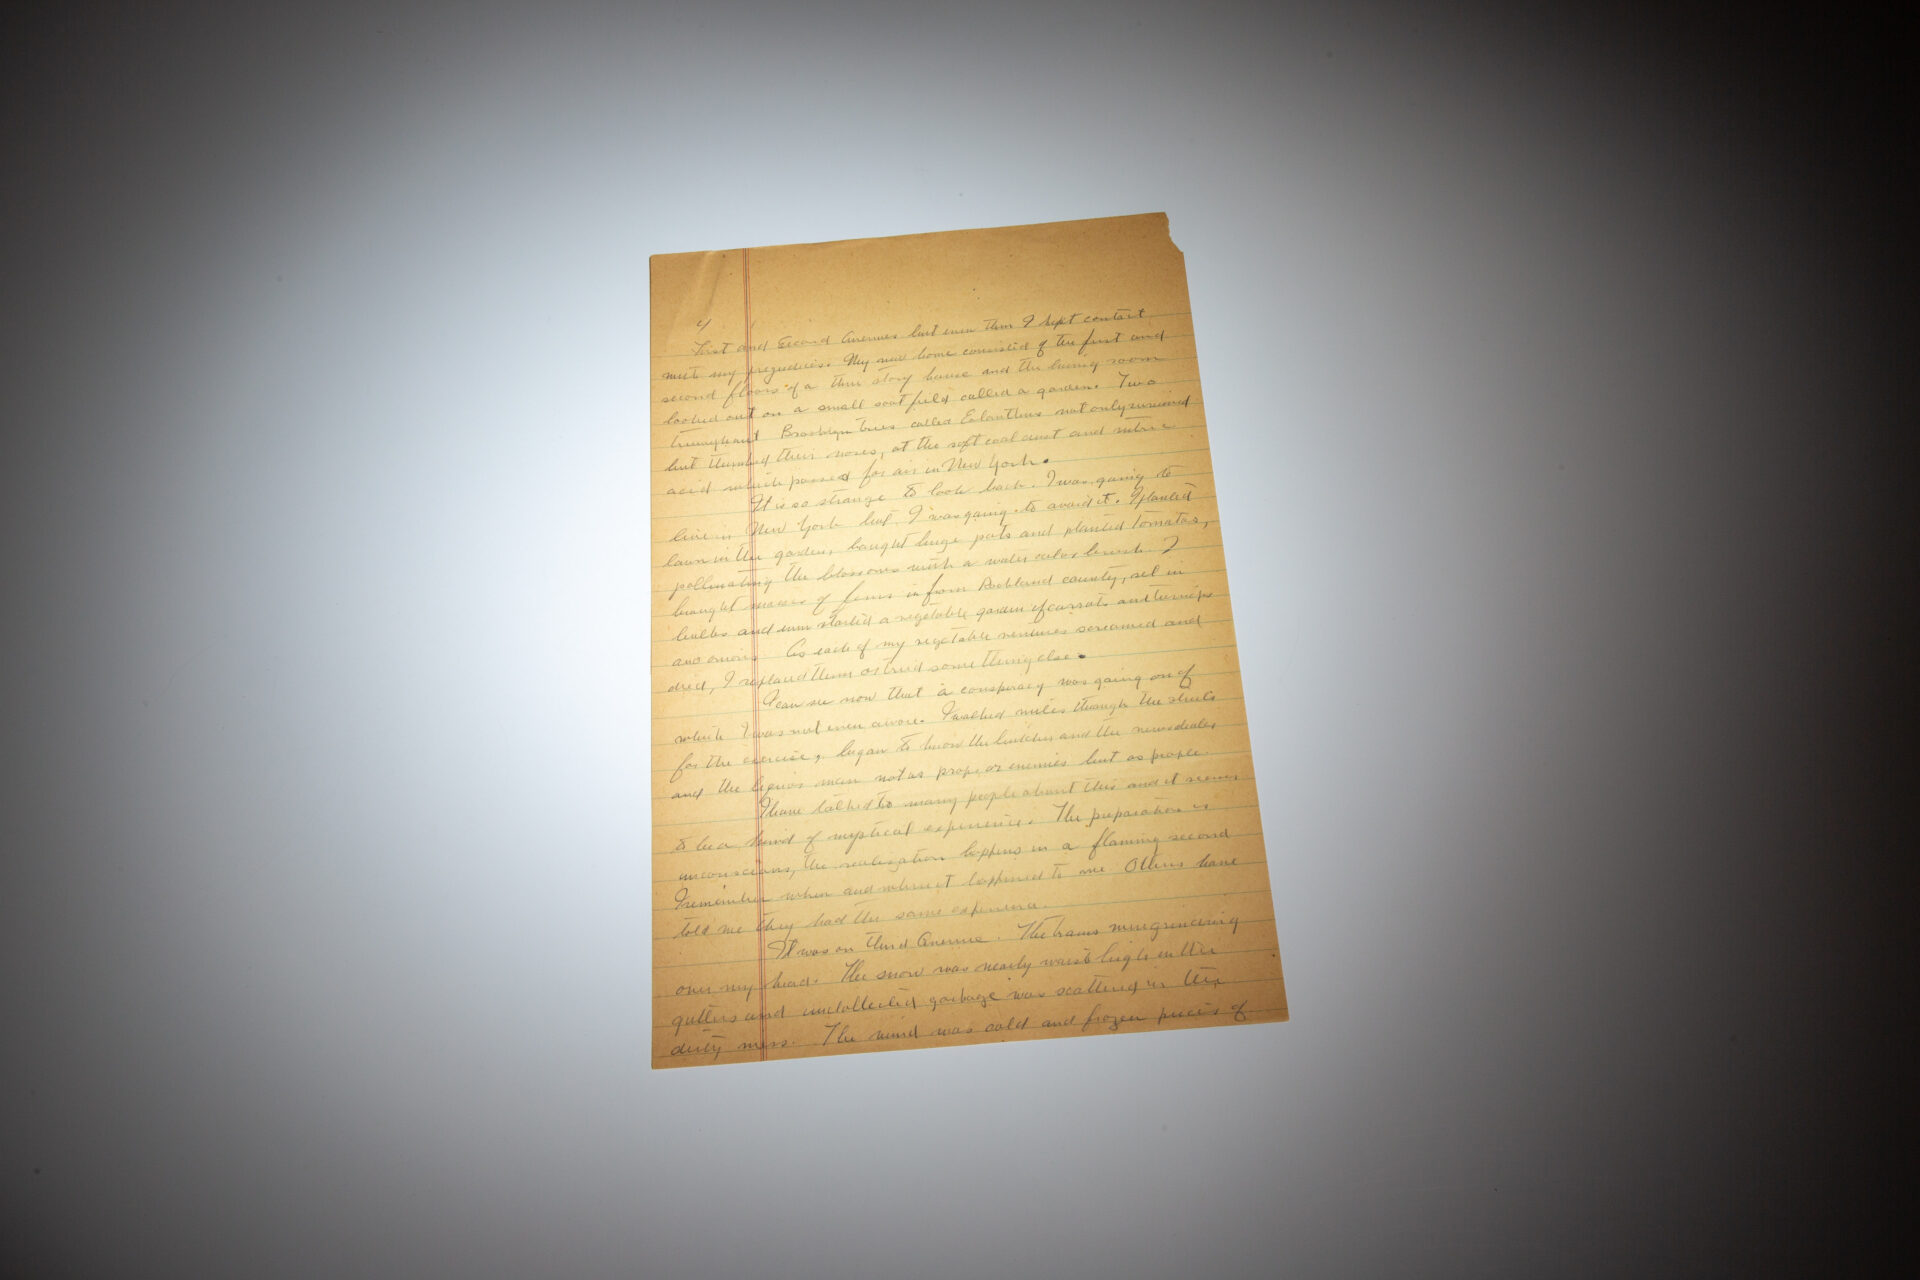 4
First and Second Avenues but even then I kept contact
with my prejudices. My new home consisted of the first and
second floors of a three story house and the living room
looked out on a small soot field called a garden. Two
triumphant Brooklyn trees called Eilanthus not only survived
but thumbed their noses, at the soft coal dust and nitric
acid which passed for air in New York.
It is so strange to look back. I was going to
live in New York but I was going to avoid it. I planted
lawn in the garden, bought huge pots and planted tomatos,
pollinating the blossoms with a water color brush. I
brought masses of ferns in from Rockland county, set in
bulbs and even started a vegetable garden of carrots and turnips
and onions. As each of my vegetable ventures screamed and
died, I replaced them or tried something else.
I can see now that a conspiracy was going on of
which I was not even aware. I walked miles through the streets
for the exercise, began to know the butcher and the newsdealer
and the liquor man not as props or enemies but as people.
I have talked to many people about this and it seems
to be a kind of mystical experience. The preparation is
unconscious, the realization happens in a flaming second
I remember when and where it happened to me Others have
told me they had the same experience.
It was on third Avenue. The trains were grinding
over my head. The snow was nearly waist high in the
gutters and uncollected garbage was scattered in the
dirty mess. The wind was cold and frozen pieces of